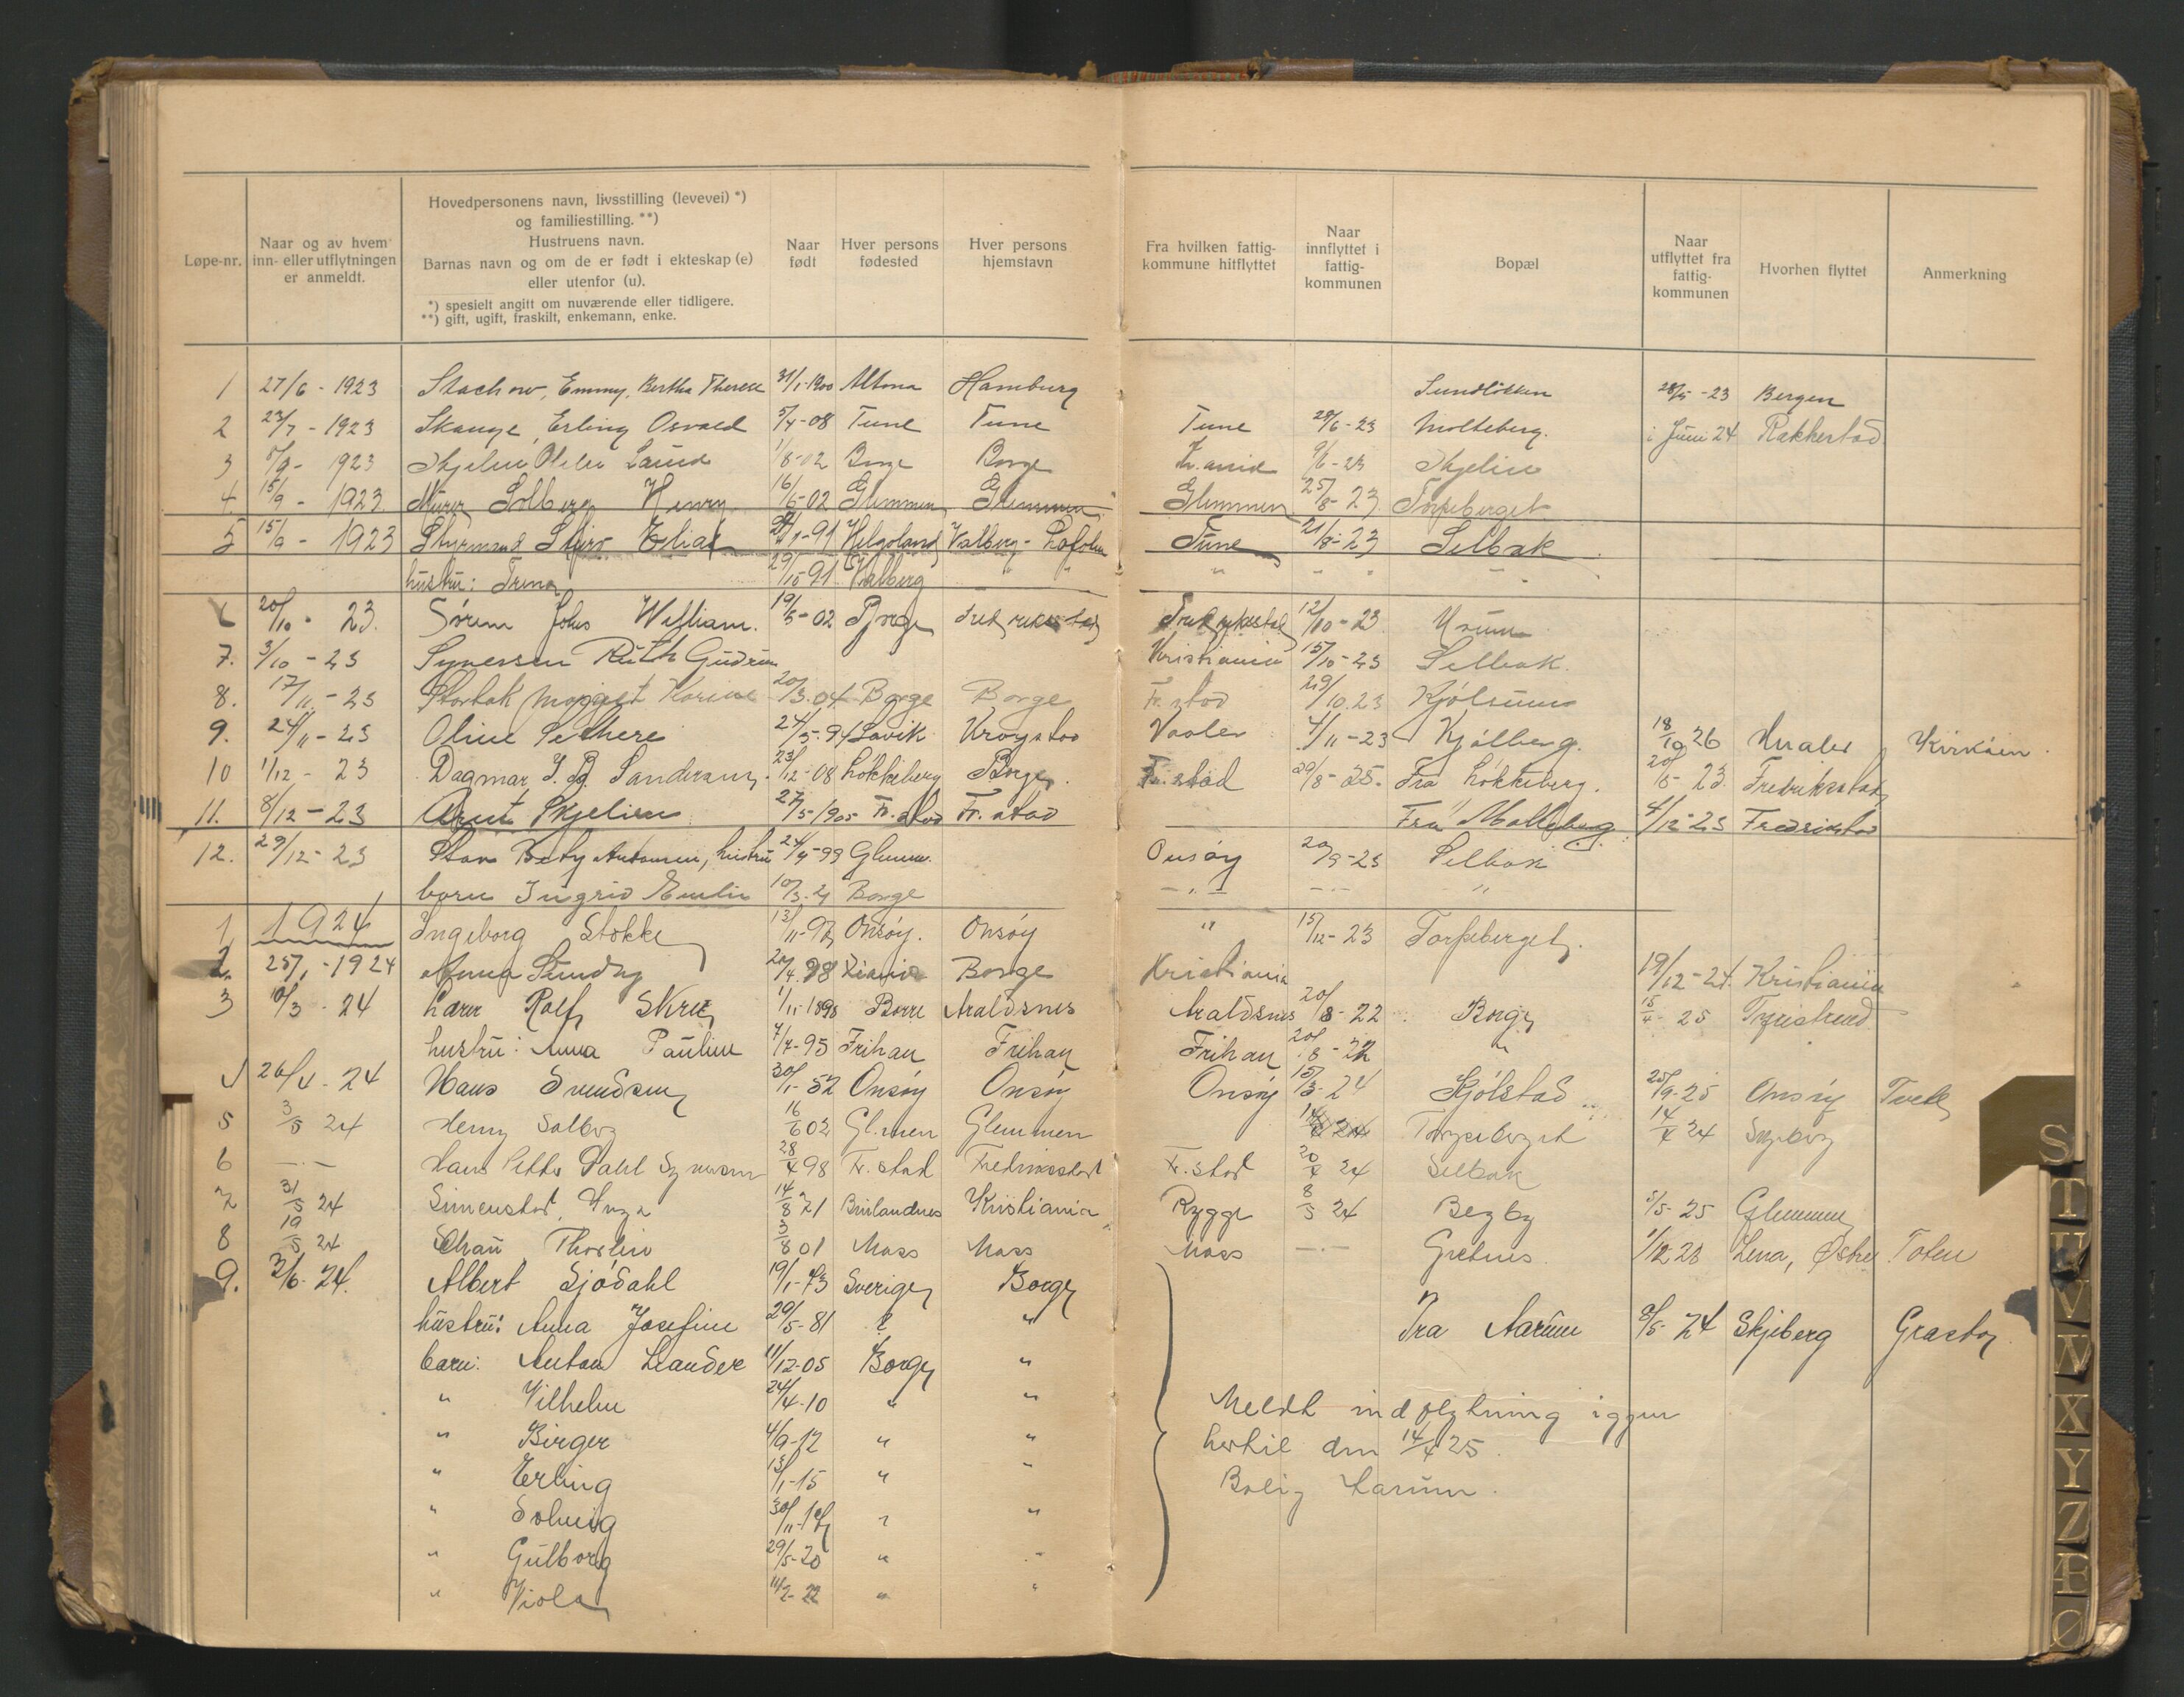 Løpe-nr.
Naar og av hvem inn- eller utflytningen er anmeldt.
Hovedpersonens navn, livsstilling (levevei) *)
og familiestilling. **)
Hustruens navn.
Barnas navn og om de er født i ekteskap (e)
eller utenfor (u).
*) spesielt angitt om nuværende eller tidligere.
**) gift, ugift, fraskilt, enkemann, enke.
Naar født
Hver persons fødested
Hver persons hjemstavn
Fra hvilken fattig-kommune hitflyttet
Naar innflyttet i fattig-kommunen
Bopæl
Naar utflyttet fra fattig-kommunen
Hvorhen flyttet
Anmerkning
1 27/6 - 1923 Stachow, Emmy, Bertha Therese 31/1-1900 Altona Hamburg Sundløkken -23 Bergen
2 23/7 - 1923 Skauge, Erling Osvald 5/4-08 Tune Tune Tune 29/6-23 Molteberg. i Juni 24 Rakkestad
3 - 1923 1/8-02 Borge Borge 9/6-23 Skjelin
4. 15/9 - 1923 Murer Solberg Henry 16/6-02 Glemmen Glemmen Glemmen 25/8-23 Torpeberget
5 15/9 - 1923 Styrmand Elias -91 Helgoland Valberg - Lofoten Tune 21/8-23 Selbak
hustru: Trina 29/10 91 Valberg " " " " "
20/10 - 23. Sørum Johs William. 19/5-02 Borge Fredrikstad Fredrikstad 12/10-23
7. 3/10 - 23 Synersen Ruth Gudrun Kristiania 15/10-23 Selbak.
8. 17/11 - 23 Storbak Karine 20/3.04 Borge Borge Fr.stad 29/10.23 Kjølsum
9. 24/11 - 23 Oline Sethere 24/5-94 Lavik Kroystad Vaaler 4/11-23 Kjølberg. 18/10 26 Hvaler Kirkøen.
10 1/12 - 23 Dagmar, J. B. Sandersen. 23/12-08 Løkkeberg Borge. Fr.stad 29/8-25. Fra Løkkeberg. 20/5-23. Fredrikstad
11. 8/12 - 23 Arnt Skjelin 27/5-1905 Fr.stad Fr.stad Fra Molteberg. 4/12-23 Fredrikstad
12. 29/12 - 23 Betsy Antonsen, hustru 24/4-99 Glemm. Onsøy 20/9-23 Selbak
barn Ingrid Emilie 10/3.21 Borge -"- -"- "
1 1924 Ingeborg Stokke 13/11-97 Onsøy. Onsøy " 15/12-23 Torpeberget.
2. 25/1-1924 Anna Sundby 20/4.98 Kiania Borge Kristiania 19/12-24. Kristiania
3 10/3 - 24 Lærer Rolf Skre 1/11-1898 Borre Araldsnes Araldsnes 20/8-22 Borge 15/4-25
hustru: Anna Pauline 7/7-95 Frihau Frihau Frihau 20/8-22 "
26/4 - 24 Hans Svendsen 30/1-52 Onsøy Onsøy Onsøy 15/3-24 Kjølstad 25/9-25 Onsøy
5 3/5 24 Henry Solberg 16/6 02 Gl.men Glemmen Torpeberget 14/4 24
6 -"- Hans Petter Dahl Synersen 28/4 98 Fr.stad Fredrikstad Fr.stad 20/4 24 Selbak
7 31/5 24 Simenstad, Inga 14/8 21 Kristiania Rygge 8/5 24 Begby 5/5-25 Glemmen
8 19/5 24 Schau Thorleiv 3/8 01 Moss Moss Moss -"- 1/12-28 Lena, Østre Toten
9. 2/6-24. Albert Sjødahl 19/1-73 Sverige Borge
hustru: Anna Josefine 29/5-81 ? " Fra Aarum 8/5-24 Skjeberg
barn: Anton Leander 11/12-05 Borge "
" Vilhelm 24/4-10 " "
" Birger 4/9-12 " "
" Erling 13/1-15 " "
" Solveig 30/11-17 " "
" Gulborg 29/5-20 " "
" Viola 11/2-22 " "
Meldt indflytning iggen
hertil den 14/4 25.
Bolig Aarum.
S
T
U
V
W
X
Y
Z
Æ
Ø